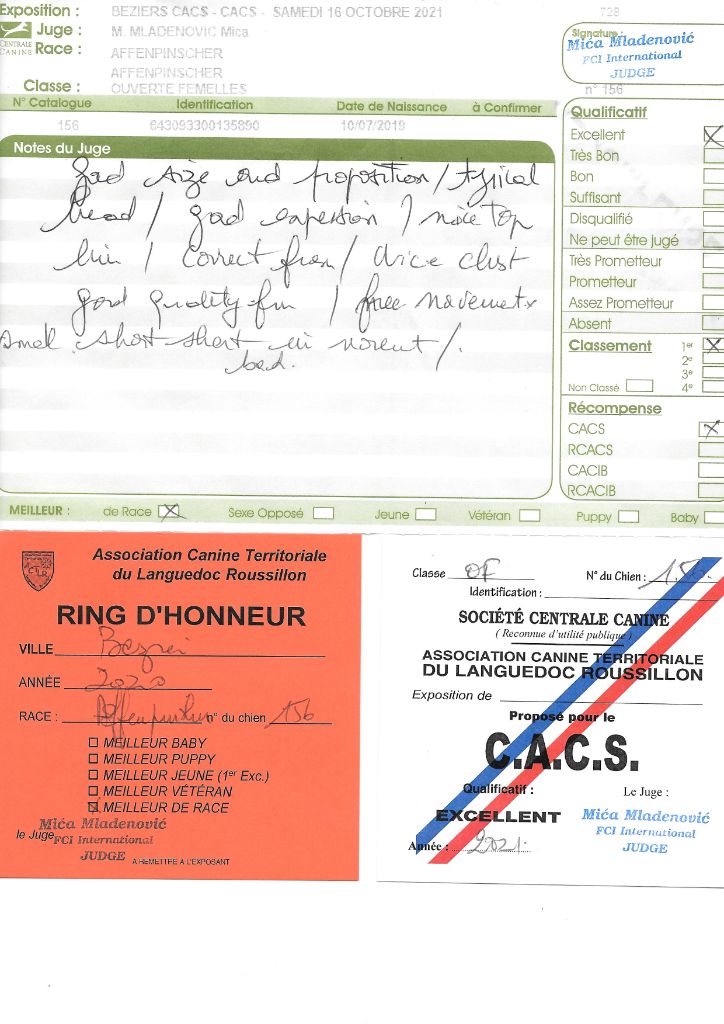 Exposition : BEZIERS CACS - CACS - SAMEDI 16 OCTOBRE 2021 728
Juge : M. MLADENOVIC Mica
CENTRALE CANINE
Race : AFFENPINSCHER
AFFENPINSCHER
Classe : OUVERTE FEMELLES
Signature :
Mića Mladenović
FCI International
JUDGE
n° 156
N° Catalogue Identification Date de Naissance à Confirmer
156 643093300135890 10/07/2019
Notes du Juge
good size and proposition / typical
head / good expression / nice top
line / correct / nice chest
good quality / free movement
short short
Qualificatif
Excellent X
Très Bon
Bon
Suffisant
Disqualifié
Ne peut être jugé
Très Prometteur
Prometteur
Assez Prometteur
Absent
Classement 1er X
2e
3e
Non Classé 4e
Récompense
CACS X
RCACS
CACIB
RCACIB
MEILLEUR : de Race X Sexe Opposé Jeune Vétéran Puppy Baby
Association Canine Territoriale
du Languedoc Roussillon
RING D'HONNEUR
VILLE
ANNÉE 2020
RACE : n° du chien 156
MEILLEUR BABY
MEILLEUR PUPPY
MEILLEUR JEUNE (1er Exc.)
MEILLEUR VÉTÉRAN
MEILLEUR DE RACE
le Juge
Mića Mladenović
FCI International
JUDGE
A REMETTRE A L'EXPOSANT
Classe OF N° du Chien : 156
Identification :
SOCIÉTÉ CENTRALE CANINE
( Reconnue d'utilité publique )
ASSOCIATION CANINE TERRITORIALE
DU LANGUEDOC ROUSSILLON
Exposition de
Proposé pour le
C.A.C.S.
Qualificatif : Le Juge :
EXCELLENT
Mića Mladenović
FCI International
JUDGE
Année : 2021